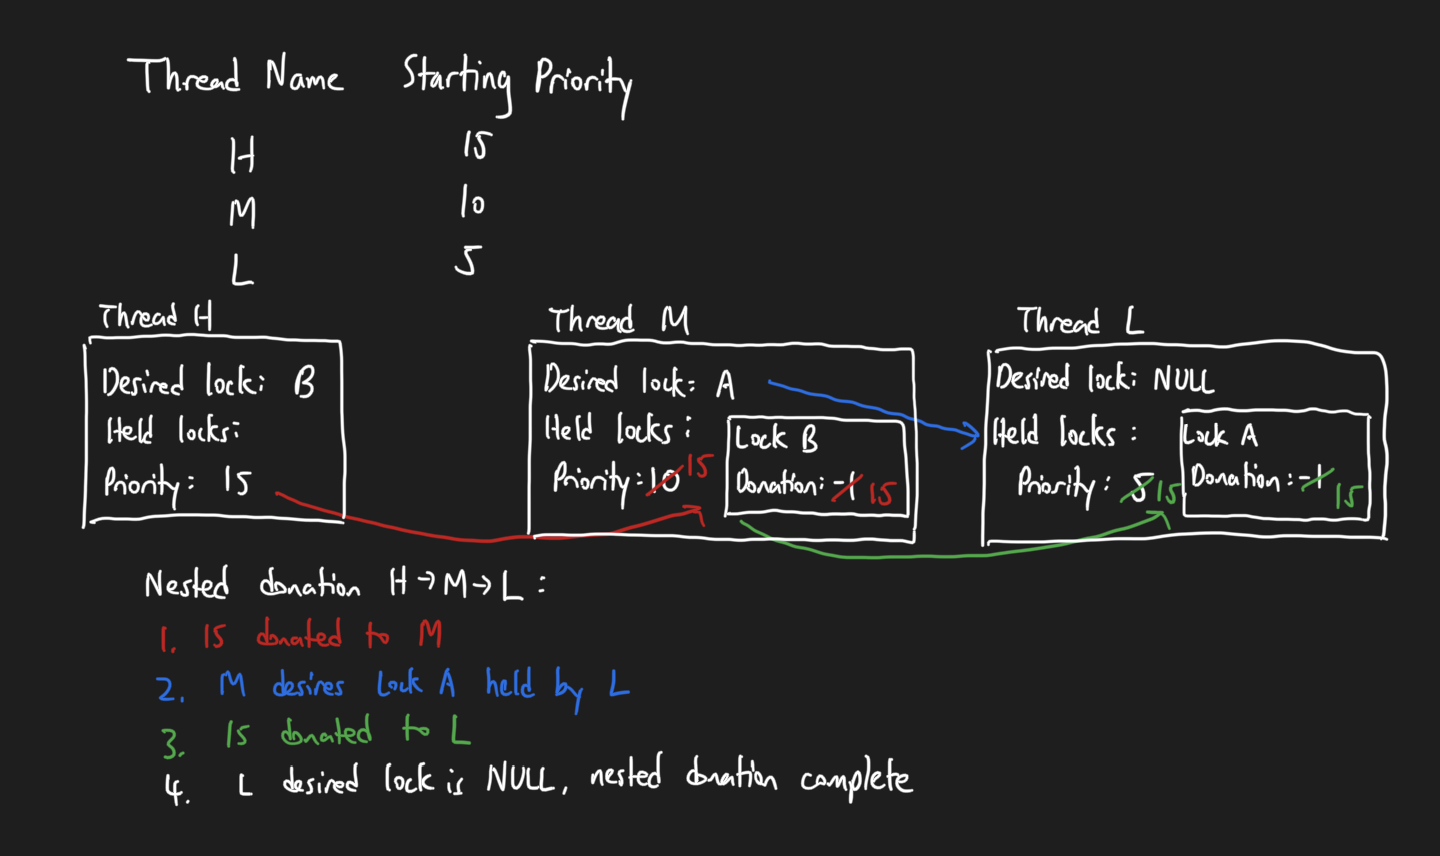 Thread Name Starting Priority
H 15
M 10
L 5
Thread H
Desired lock: B
Held locks:
Priority: 15
Thread M
Desired lock: A
Held locks:
Priority: 10 15
Lock B
Donation: -1 15
Thread L
Desired lock: NULL
Held locks:
Priority: 5 15
Lock A
Donation: -1 15
Nested donation H→M→L:
1. 15 donated to M
2. M desires Lock A held by L
3. 15 donated to L
4. L desired lock is NULL, nested donation complete